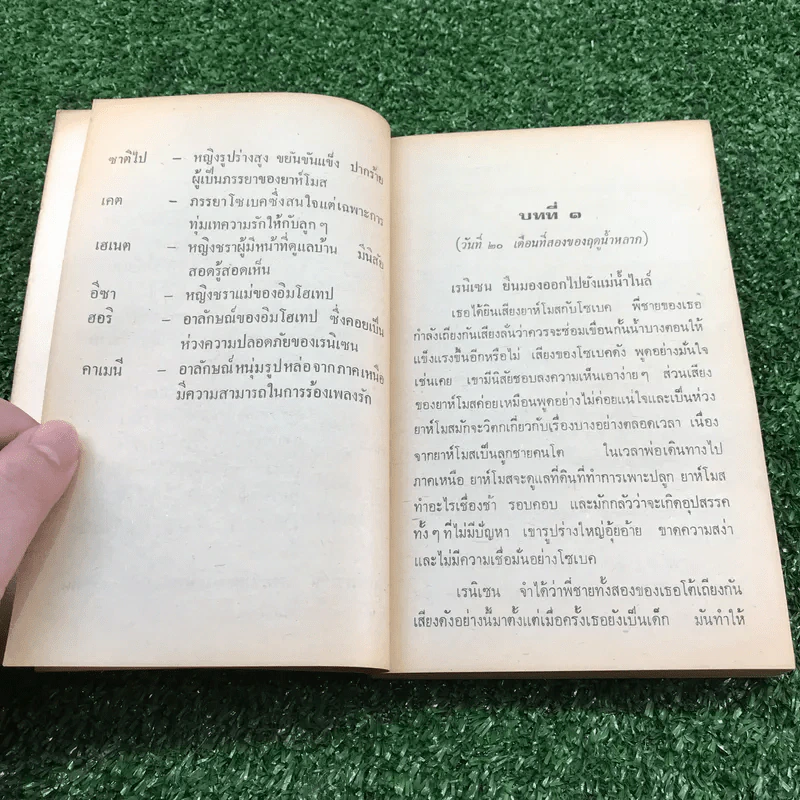 ซาติไป – หญิงรูปร่างสูง ขยันขันแข็ง ปากร้าย
ผู้เป็นภรรยาของยาห์โมส
เคต – ภรรยาโซเบคซึ่งสนใจแต่เฉพาะการ
ทุ่มเทความรักให้กับลูกๆ
เฮเนต – หญิงชราผู้มีหน้าที่ดูแลบ้าน มีนิสัย
สอดรู้สอดเห็น
อีซา – หญิงชราแม่ของอิมโฮเทป
ฮอริ – อาลักษณ์ของอิมโฮเทป ซึ่งคอยเป็น
ห่วงความปลอดภัยของเรนิเซน
คาเมนี – อาลักษณ์หนุ่มรูปหล่อจากภาคเหนือ
มีความสามารถในการร้องเพลงรัก
บทที่ ๑
(วันที่ ๒๐ เดือนที่สองของฤดูน้ำหลาก)
เรนิเซน ยืนมองออกไปยังแม่น้ำไนล์
เธอได้ยินเสียงยาห์โมสกับโซเบค พี่ชายของเธอ
กำลังเถียงกันเสียงลั่นว่าควรจะซ่อมเขื่อนกั้นน้ำบางตอนให้
แข็งแรงขึ้นอีกหรือไม่ เสียงของโซเบคดัง พูดอย่างมั่นใจ
เช่นเคย เขามีนิสัยชอบลงความเห็นเอาง่ายๆ ส่วนเสียง
ของยาห์โมสค่อยเหมือนพูดอย่างไม่ค่อยแน่ใจและเป็นห่วง
ยาห์โมสมักจะวิตกเกี่ยวกับเรื่องบางอย่างตลอดเวลา เนื่อง
จากยาห์โมสเป็นลูกชายคนโต ในเวลาพ่อเดินทางไป
ภาคเหนือ ยาห์โมสจะดูแลที่ดินที่ทำการเพาะปลูก ยาห์โมส
ทำอะไรเชื่องช้า รอบคอบ และมักกลัวว่าจะเกิดอุปสรรค
ทั้งๆ ที่ไม่มีปัญหา เขารูปร่างใหญ่อุ้ยอ้าย ขาดความสง่า
และไม่มีความเชื่อมั่นอย่างโซเบค
เรนิเซน จำได้ว่าพี่ชายทั้งสองของเธอโต้เถียงกัน
เสียงดังอย่างนี้มาตั้งแต่เมื่อครั้งเธอยังเป็นเด็ก มันทำให้